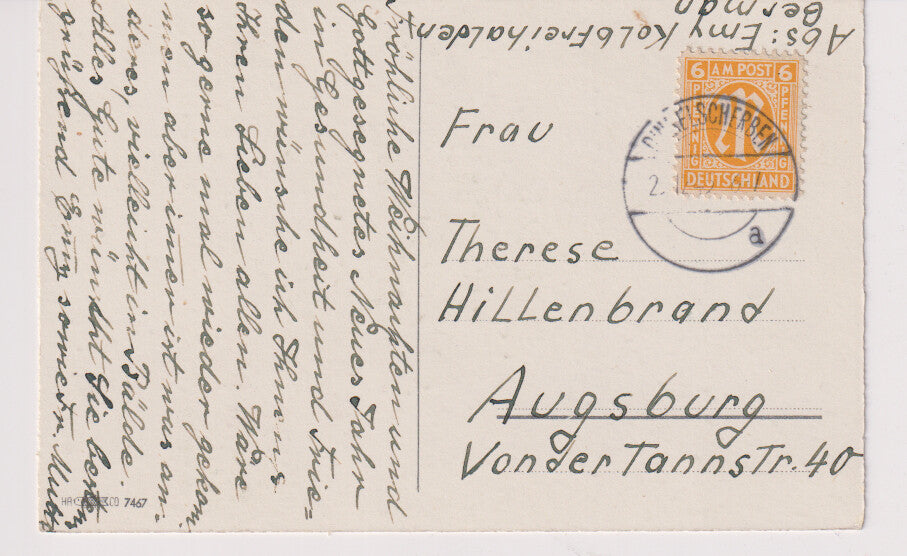 Abs: Emy Kolb Freihalden,
Berman
6 AM POST 6
PFENNIG PFENNIG
DEUTSCHLAND
SCHERBEN
a
Frau
Therese
Hillenbrand
Augsburg
Von der Tannstr. 40
Fröhliche Weihnachten und
Gottgesegnetes Neues Jahr
in Gesundheit und Frie-
den wünsche ich Ihnen &
Ihren Lieben allen. Wäre
so gerne mal wieder gekom
men aber immer ist was an-
deres, vielleicht in Bälde.
Alles Gute wünscht Sie
grüßend Emy sowie Fr.
7467